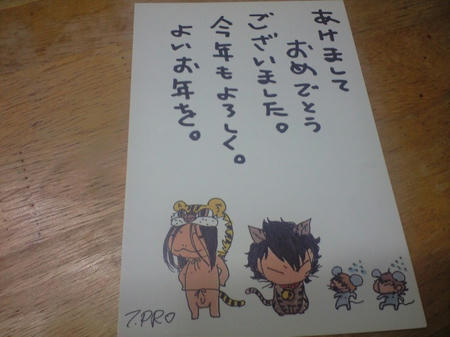 あけまして
おめでとう
ございました。
今年もよろしく。
よいお年を。
7.PRO